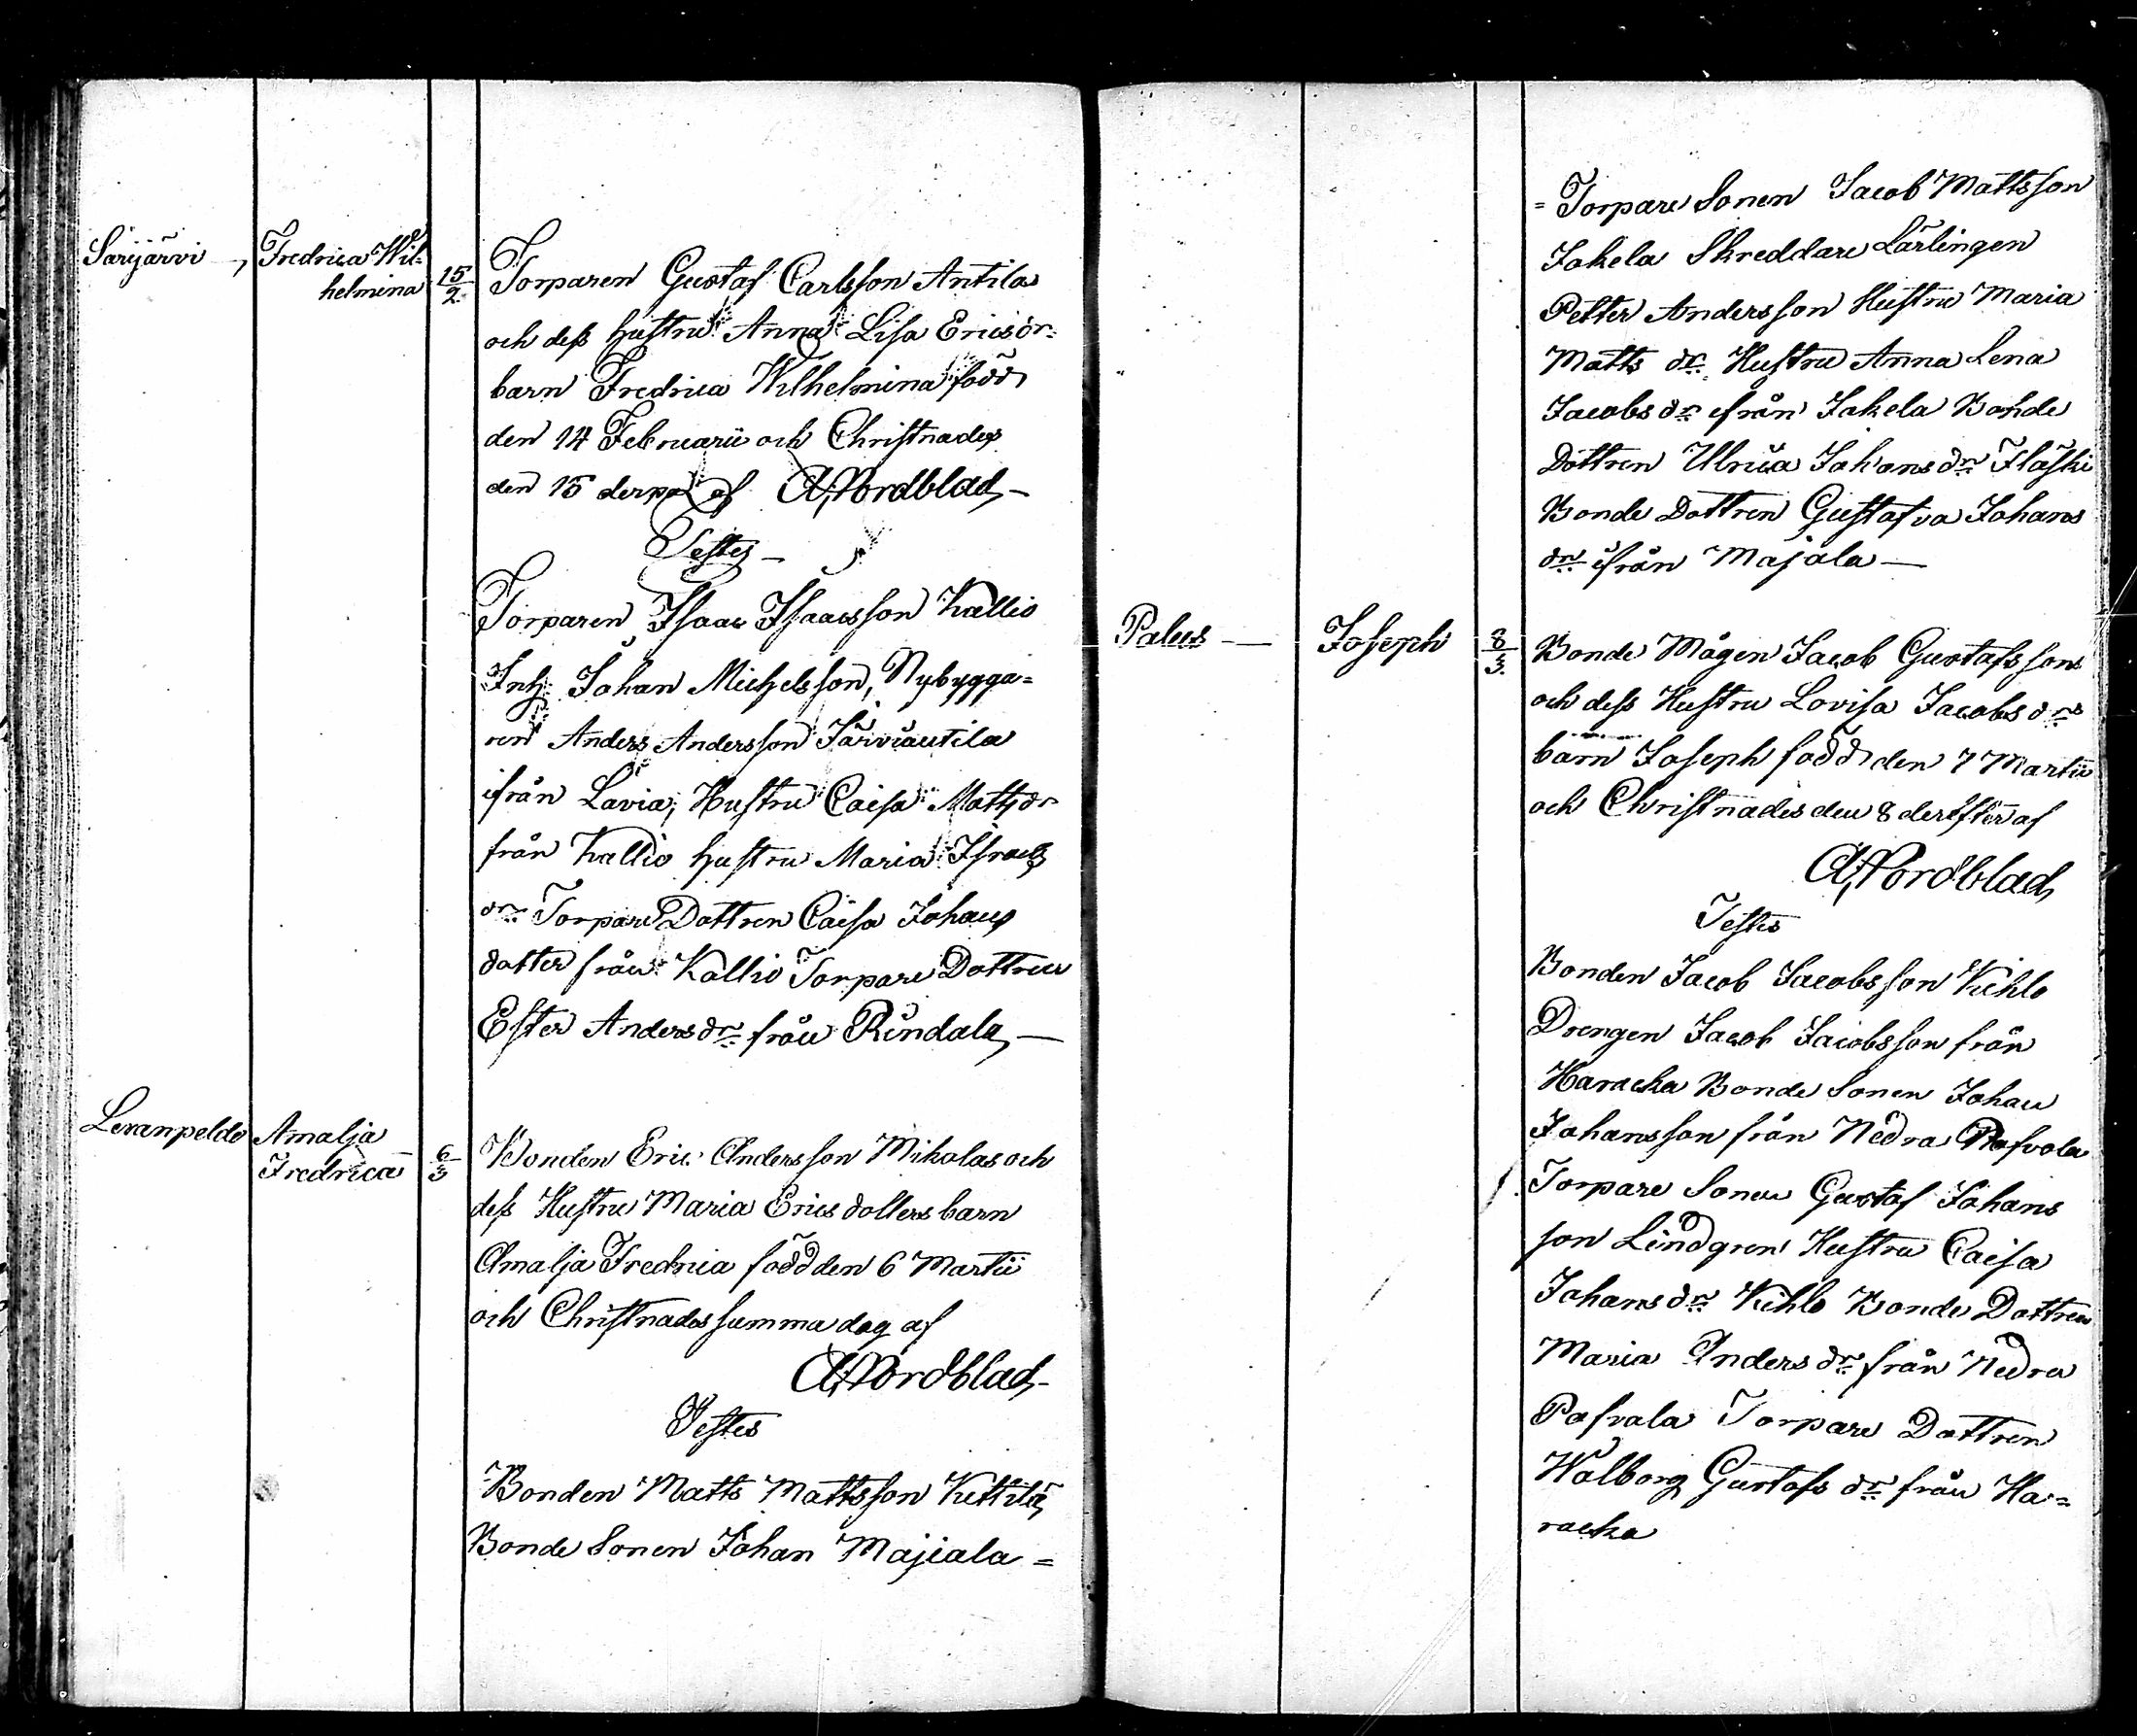 Särijärvi —
Fredrica Wil=
helmina
15/2
Torparen Gustaf Carlsson Antila
och dess hustru Anna Lisa Ericsdr
barn Fredrica Wilhelmina född
den 14 Februarii och Christnades
den 15 derpå af A Nordblad —
Testes —
Torparen Isaac Isaacsson Kallio
Inh: Johan Michelsson, Nybygga=
ren Anders Andersson Järviäutila
ifrån Lavia, Hustru Caisa Mattsdr
från Kallio hustru Maria Israels
dr Torpare Dottren Caisa Johans
dotter från Kallio Torpare Dottren
Ester Anders dr från Rindala —
Levanpeldo
Amalja
Fredrica
6/3
Bonden Eric Andersson Mikolas och
dess Hustru Maria Erics dotters barn
Amalja Fredrica född den 6 Martii
och Christnades samma dag af
A Nordblad —
Testes
Bonden Matts Mattsson Kittilä
Bonde Sonen Johan Majiala =
= Torpare Sonen Jacob Mattsson
Jakela Skreddare Lärlingen
Petter Andersson Hustru Maria
Matts dr Hustru Anna Lena
Jacobs dr ifrån Jakela Bonde
Dottren Ulrica Johans dr Fläski
Bonde Dottren Gustafva Johans
dr ifrån Majala —
Palus —
Joseph
8/3
Bonde Mågen Jacob Gustafssons
och dess Hustru Lovisa Jacobs drs
barn Joseph född den 7 Martii
och Christnades den 8 derefter af
A Nordblad
Testes
Bonden Jacob Jacobsson Kihlo
Drengen Jacob Jacobsson från
Haracka Bonde Sonen Johan
Johansson från Nedra Pafvola
Torpare Sonen Gustaf Johans
son Lindgren Hustru Caisa
Johans dr Kihlo Bonde Dottren
Maria Anders dr från Nedra
Pafvala Torpare Dottren
Walborg Gustafs dr från Ha=
racka